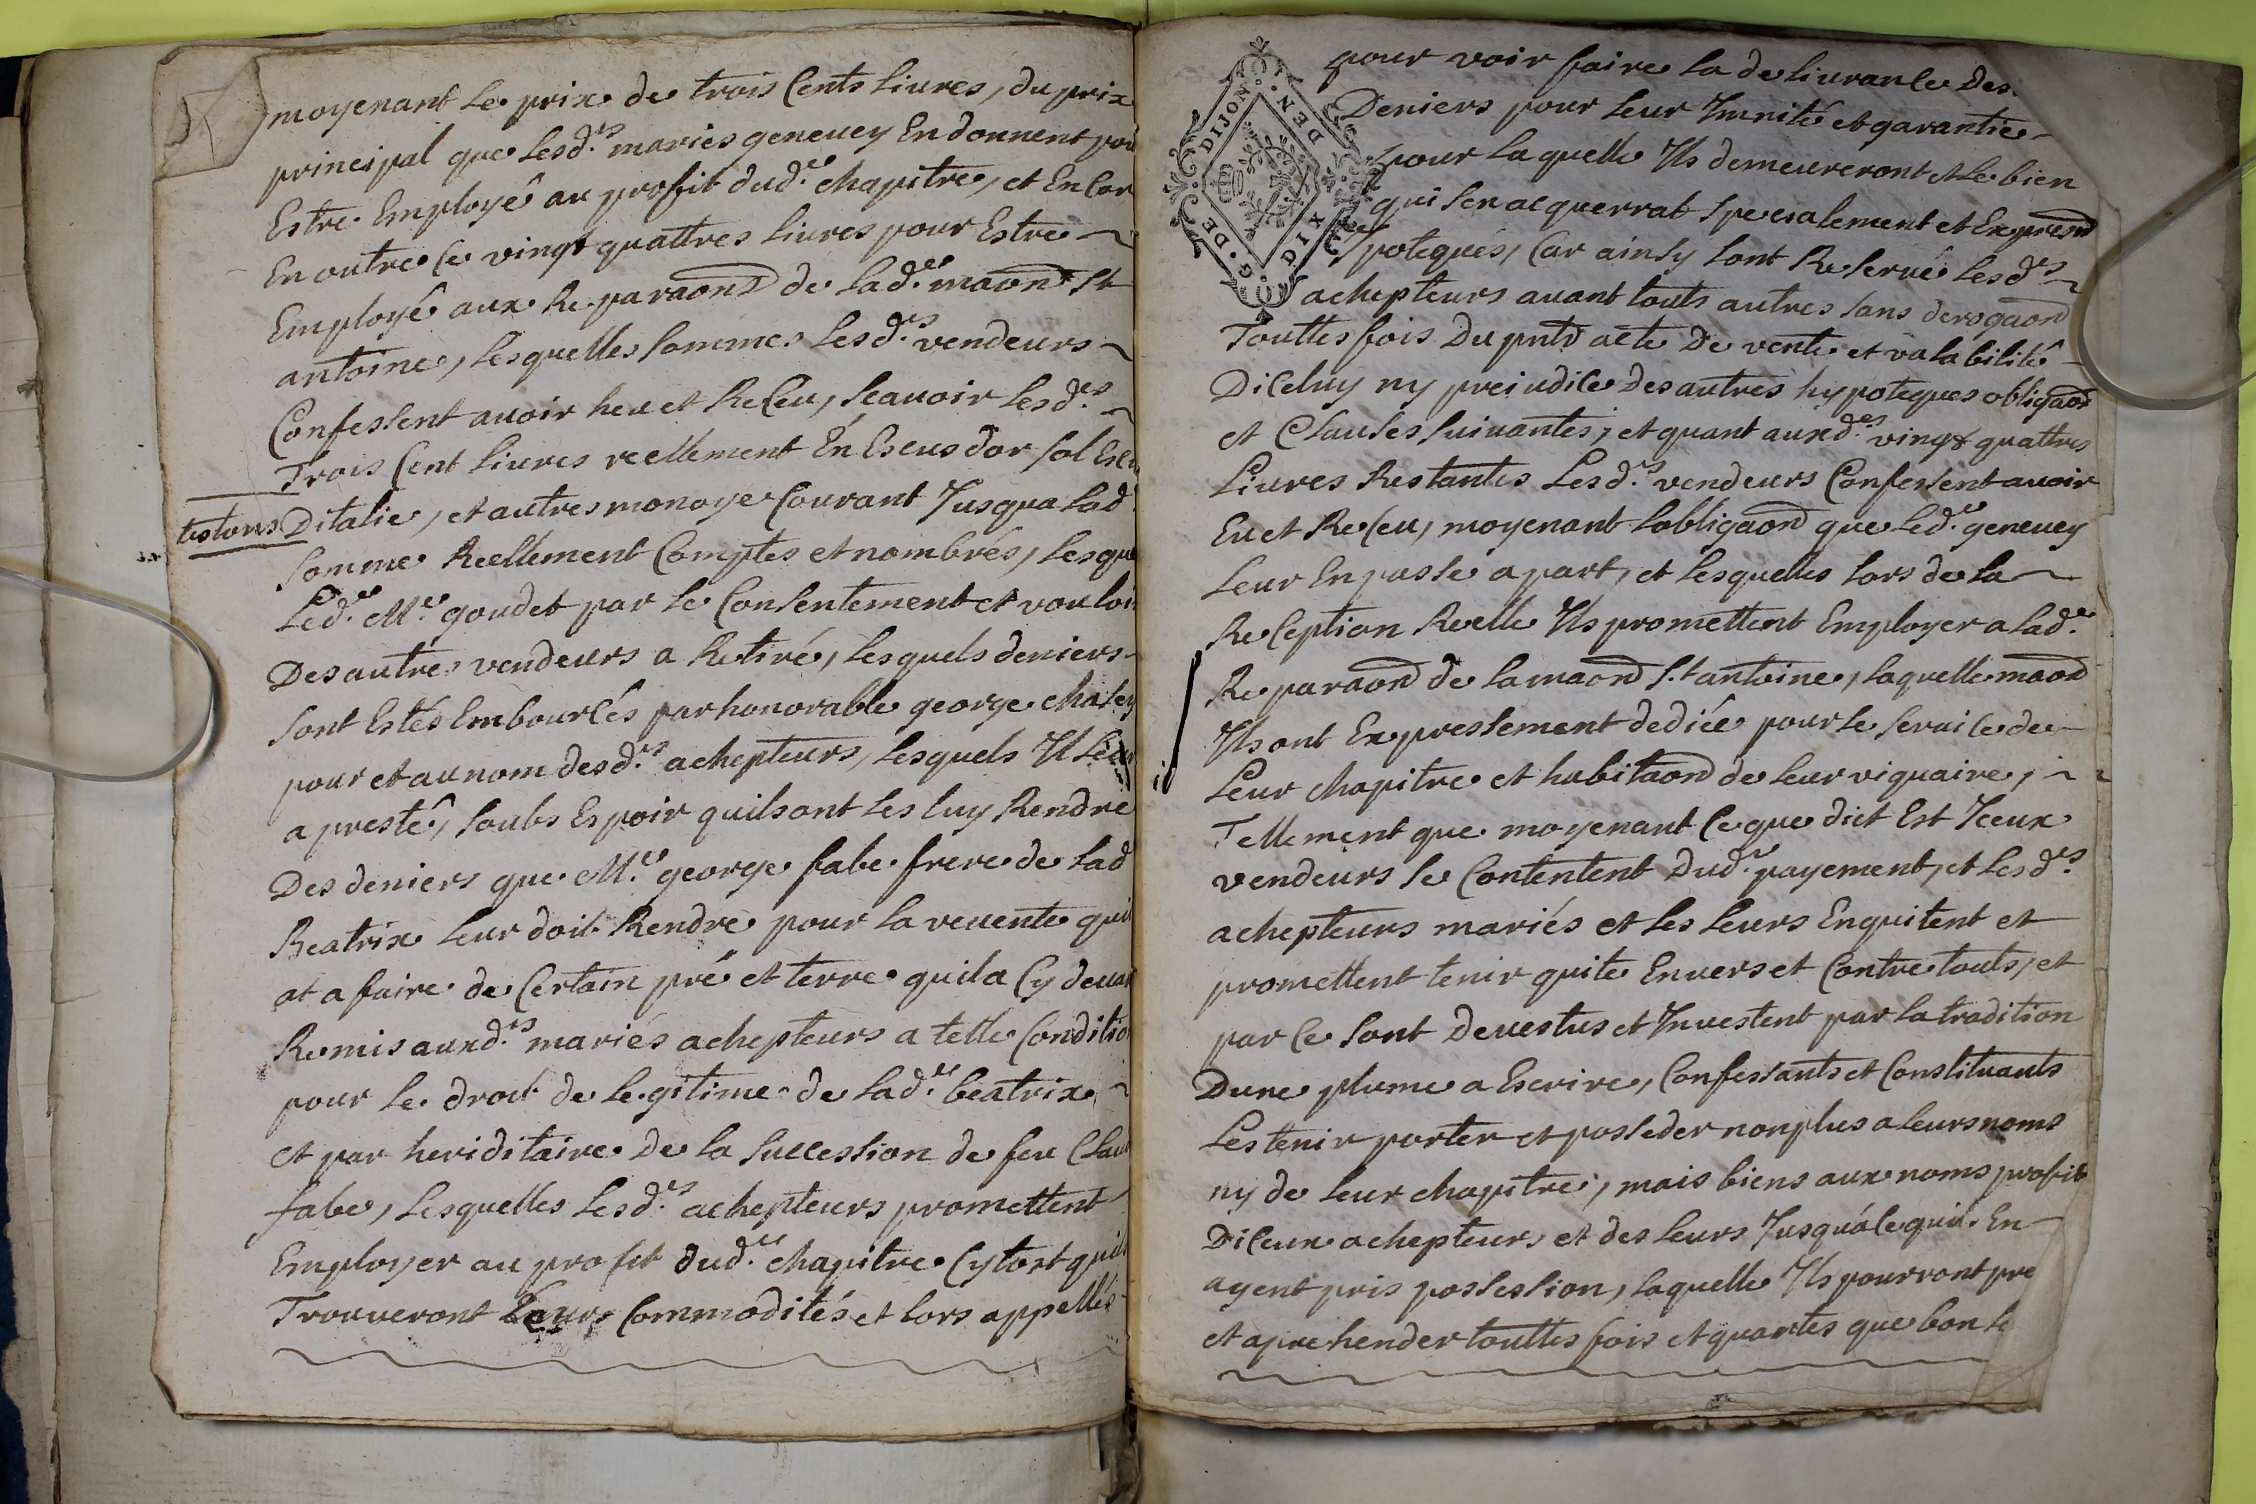 moyenant Le prix de trois Cents Livres, du prix
principal que Lesd.es mariés geneuey En donnent pou
Estre Employé au profit dud.e chapitre, et En Cor
En outre Ce vingt quattres Livres pour Estre
Employé aux Reparaons de Lad.e maon St
antoine, Lesquelles Sommes Lesd.es vendeurs
Confessent avoir heu et ReCeu, Scauoir Lesd.es
Trois Cent Livres reellement En Escus dor Sol Escu
testons Ditalie, et autres monoye Courant Jusqua Lad
Somme Reellement Comptes et nombrés, Lesque
Led.e Me. goudet par Le Consentement et vouloir
Des autres vendeurs a Retiré, Lesquels deniers
Sont Estés EmbourCés par honorable george chasey
pour et au nom desd.es achepteurs, Lesquels Il Leur
a presté, Soubs Espoir quils ont Les luy Rendre
Des deniers que M.e george fabe frere de Lad
Beatrix Leur doit Rendre pour La reuente quil
at a faire de Certain pré et terre quil a Cy deuan
Remis auxd.es mariés achepteurs a telle Conditio
pour Le droit de Legitime de Lad.e beatrix
et par heriditaire De La Succession de feu Clau
fabe, Lesquelles Lesd.es achepteurs promettent
Employer au profit dud.e chapitre Cytost quils
Trouueront Leurs Commodités et Lors appellés
G. DE DIJON
DIX DEN
pour voir faire La deliurance Des
Deniers pour Leur Imnité et garantie
pour Laquelle Ils demeureront et Le bien
qui Sen acquerrat Specialement et Expresmt
Ipotequés, Car ainsy Sont Reserué Lesd.es
achepteurs auant touts autres Sans derogaon
Touttes fois Du pnt acte De vente et valabilité
DiCeluy ny preiudiCe Des autres hypoteques obligaon
et Clauses Suiuantes; et quant auxd.es vingt quattres
Liures Restantes Lesd.es vendeurs Confessent auoir
Eu et ReCeu, moyenant Lobligaon que Led.e geneuey
Leur En passe a part, et Lesquelles Lors de La
ReCeption Reelle Ils promettent Employer a Lad.e
Reparaon de La maon St antoine, Laquelle maon
Ils ont Expressement dediée pour Le SeruiCe de
Leur chapitre et habitaon de Leur viquaire,
Tellement que moyenant Ce que dict Est Iceux
vendeurs Se Contentent Dud.e payement, et Lesd.es
achepteurs mariés et Les Leurs Enquitent et
promettent tenir quite Enuers et Contre touts, et
par Ce Sont Deuestus et Inuestent par La tradition
Dune plume a Escrire, Confessants et Constituants
Les tenir porter et posseder non plus a Leurs noms
ny de Leur chapitre, mais biens aux noms profit
DiCeux achepteurs et des Leurs Jusquá Ce quil En
ayent pris possession, Laquelle Ils pourront pre
et aprehender touttes fois et quantes que bon Le